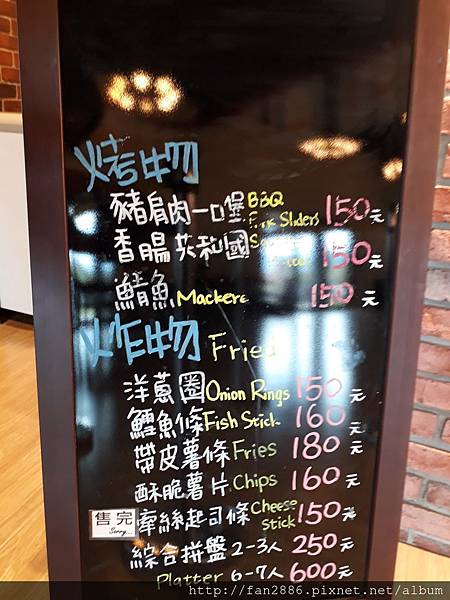 烤物
豬肩肉一口堡 BBQ Pork Sliders 150元
香腸共和國 150元
鯖魚 Mackere 150元
炸物 Fried
洋蔥圈 Onion Rings 150元
鱈魚條 Fish Stick 160元
帶皮薯條 Fries 180元
酥脆薯片 Chips 160元
售完 Sorry...
牽絲起司條 Cheese Stick 150元
綜合拼盤 2-3人 250元
Platter 6-7人 600元
http://fan2886.pixnet.net/album